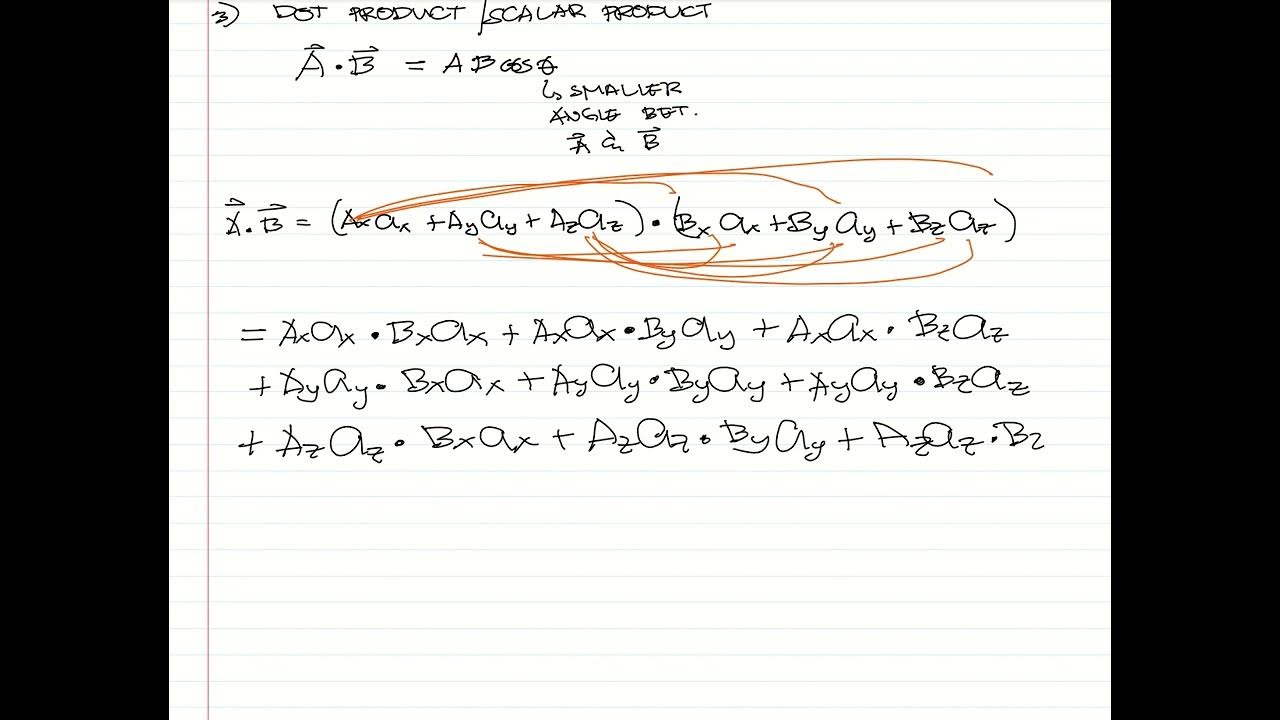 3) DOT PRODUCT / SCALAR PRODUCT
A⃗ · B⃗ = A B cos θ
↳ SMALLER
ANGLE BET.
A⃗ & B⃗
A⃗ · B⃗ = (Axax + Ayay + Azaz) · (Bxax + Byay + Bzaz)
= Axax · Bxax + Axax · Byay + Axax · Bzaz
+ Ayay · Bxax + Ayay · Byay + Ayay · Bzaz
+ Azaz · Bxax + Azaz · Byay + Azaz · Bz